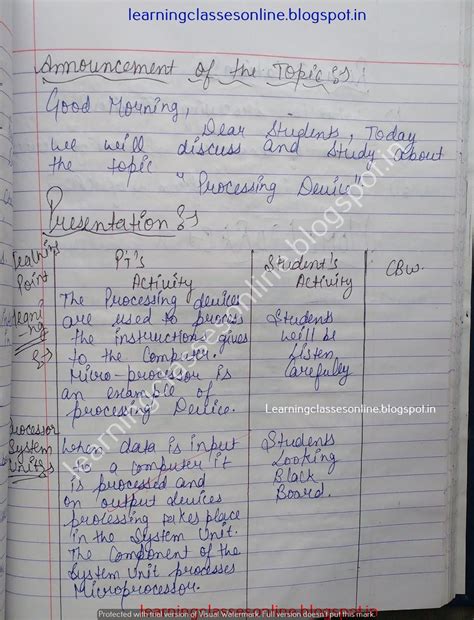 learningclassesonline.blogspot.in
Announcement of the Topic :-
Good Morning,
Dear Students, Today
we will discuss and Study about
the topic
"Processing Device"
Presentation :-
Teaching Point
PT's Activity
Student's Activity
CBW.
Meaning :-
The Processing devices
are used to process
the instructions gives
to the Computer.
Micro-processor is
an example of
processing Device.
Students
will be
Listen
Carefully
Learningclassesonline.blogspot.in
Processor
System
Units
When data is input
to a computer it
is processed and
on output devices
processing takes place
in the System Unit.
The Component of the
System Unit processes
Microprocessor.
Students
Looking
Black
Board.
learningclassesonline.blogspot.in
Protected with trial version of Visual Watermark. Full version doesn't put this mark.
learningclassesonline.blogspot.in